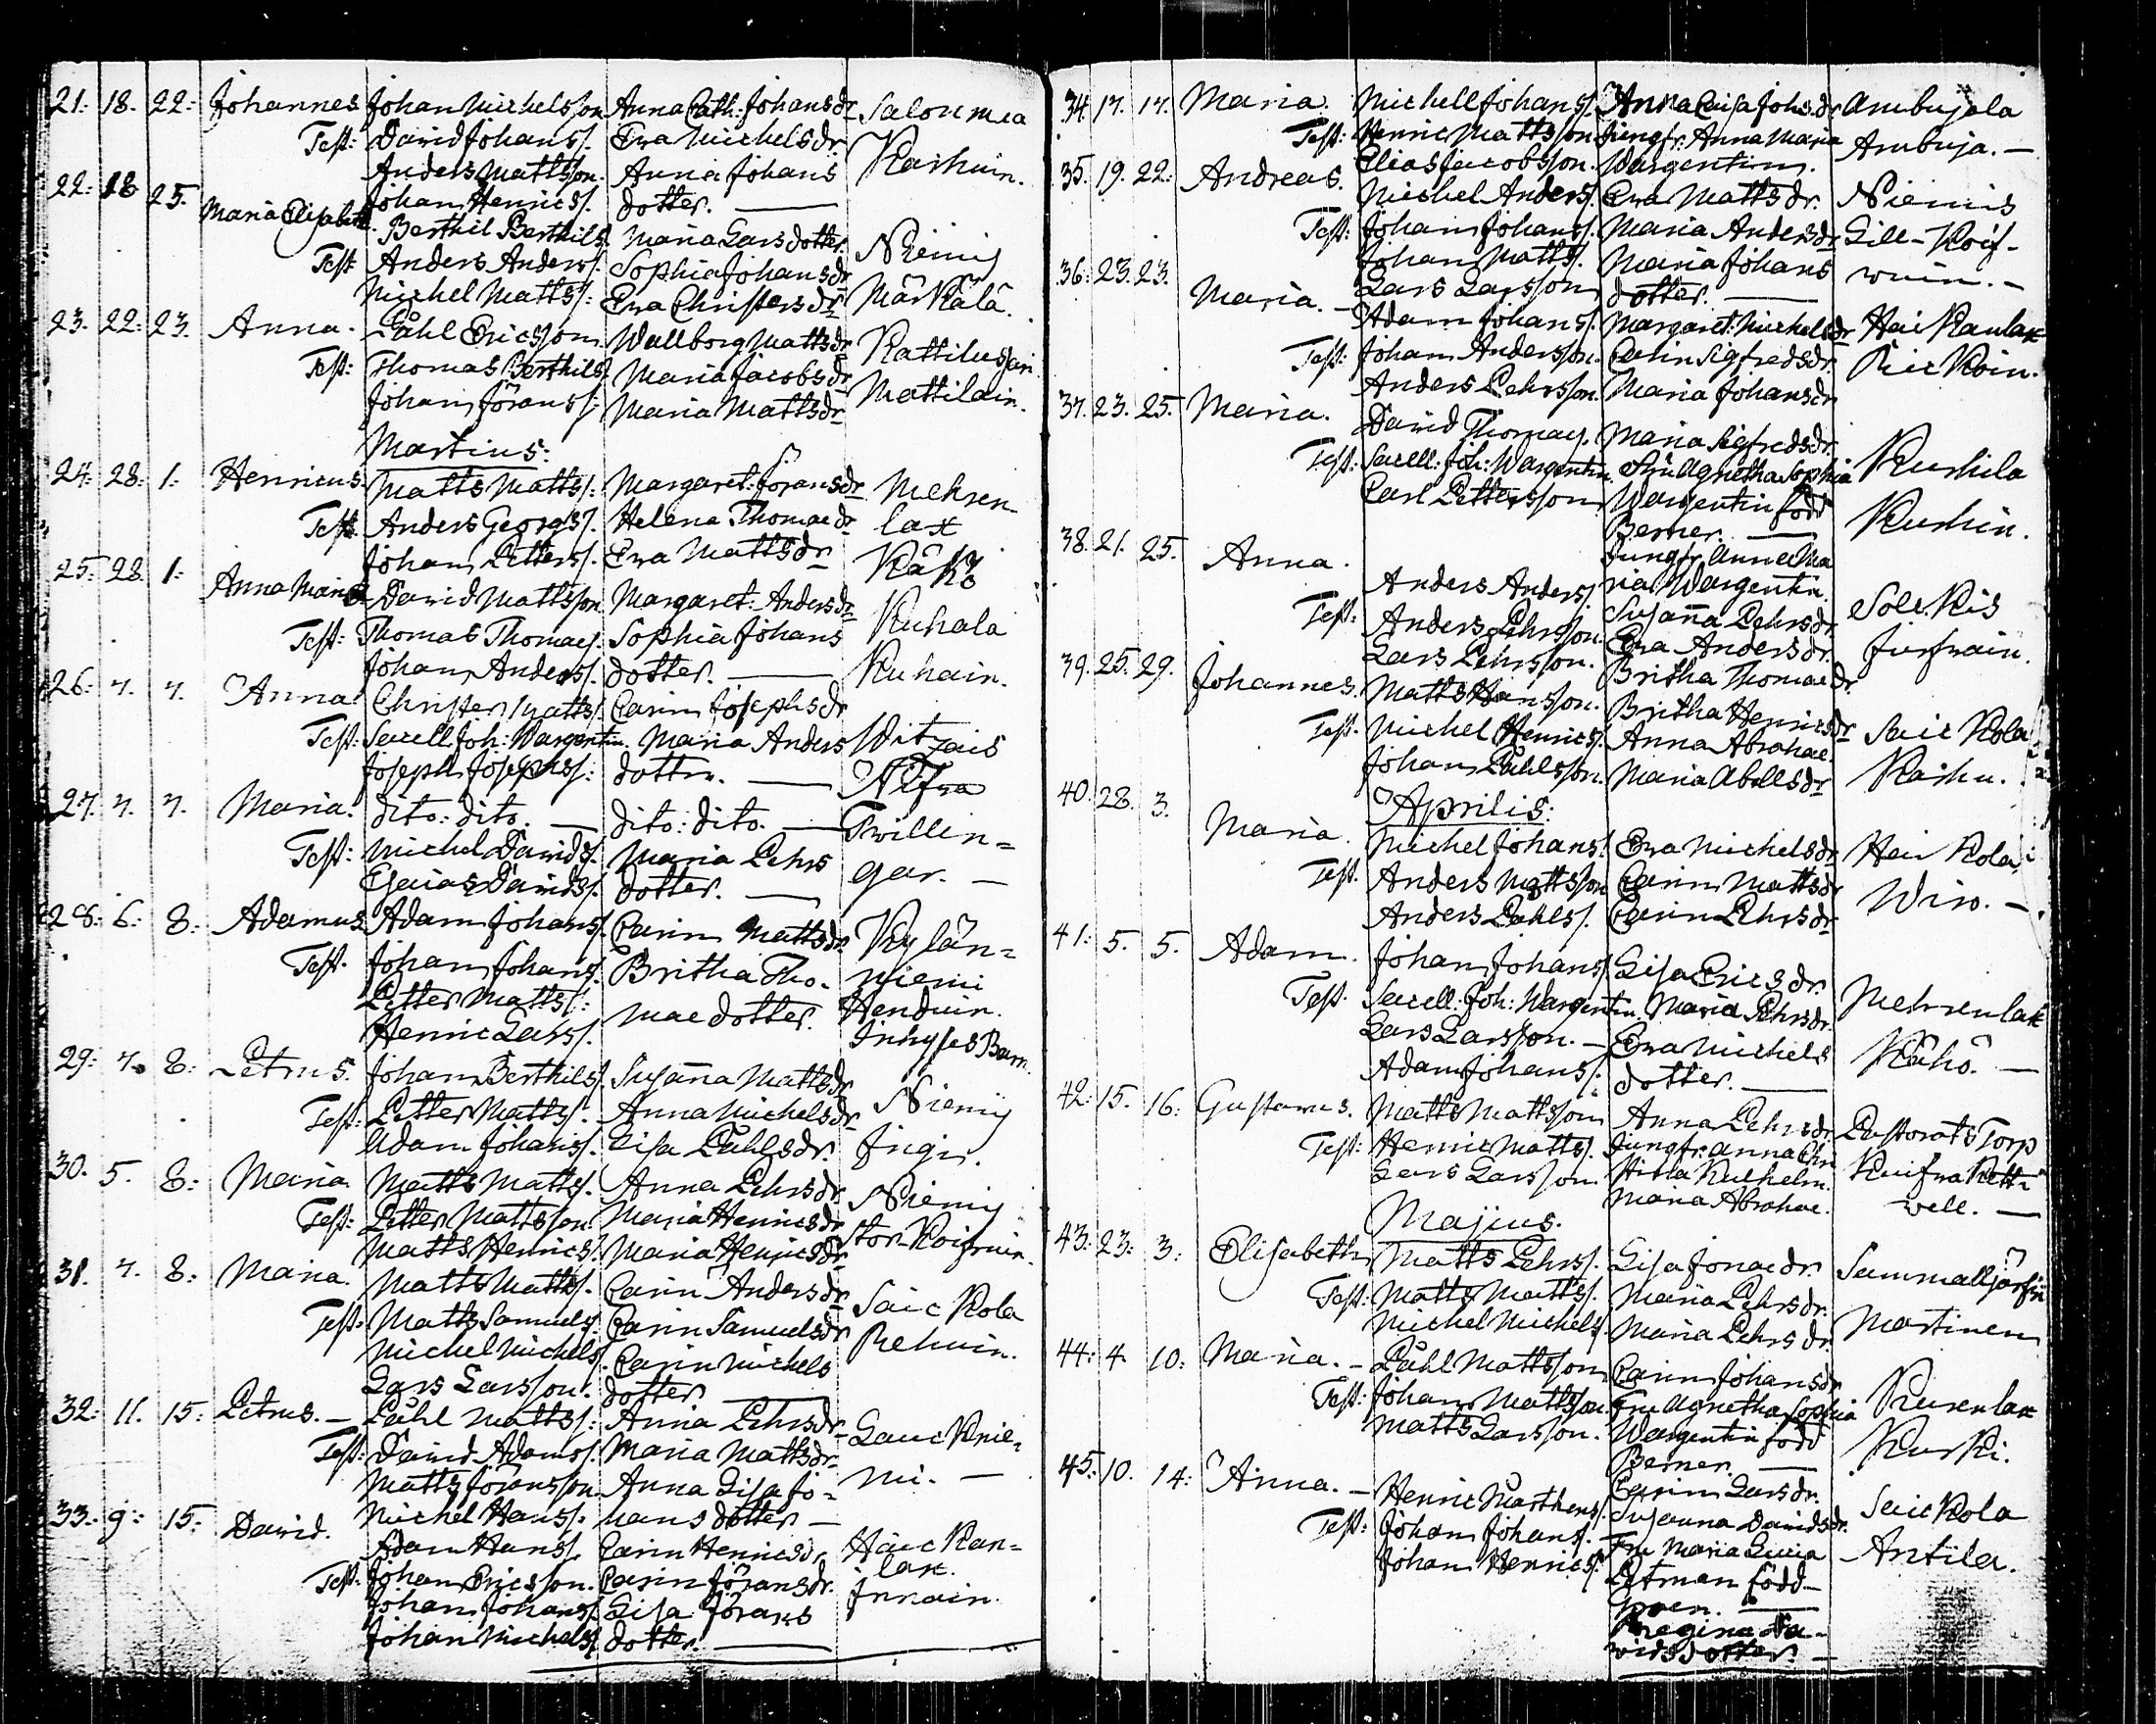 21: 18. 22: Johannes Johan Michelsson Anna Cath: Johansdr Saloumea
Test: David Johans/. Eva Michelsdr Karhuin.
Anders Mattsson. Anna Johans
Johan Henrics/. dotter.
22: 18 25. Maria Elisabeth. Berthil Berthils/. Maria Larsdotter Niemis
Test: Anders Anders/. Sophia Johansdr Märkälä.
Michel Matts/: Eva Christersdr
23. 22: 23. Anna. Påhl Ericsson Wallborg Mattsdr Kattilusjari.
Test: Thomas Berthils/. Maria Jacobsdr Mattilain.
Johan Jörans/: Maria Mattsdr
Martius:
24: 28: 1: Henricus. Matts Matts/: Margaret: Joransdr Mehren
Test: Anders Georgs/. Helena Thomaedr lax
Johan Petters/. Eva Mattsdr Kåkö
25: 28. 1: Anna Maria David Mattsson. Margaret: Andersdr Kuhala
Test: Thomas Thomaes/. Sophia Johans
Johan Anders/. dotter. Kuhain.
26: 7. 7. Anna. Christer Matts/. Carin Josephsdr
Test: Sacell. Joh: Wargentin. Maria Anders Witzais
Joseph Josephs/: dotter. Nifva
27. 7. 7. Maria. dito: dito. dito: dito. Twillin=
Test: Michel Davids/. Maria Pehrs gar.
Esaias Davids/. dotter.
28: 6: 8: Adamus Adam Johans/. Carin Mattsdr Kylän=
Test. Johan Johans/. Britha Tho- niemi
Petter Matts/: mae dotter. Henduin.
Henric Lars/. Inhyses Barn.
29: 7. 8: Petrus. Johan Berthils/. Susanna Mattsdr Niemis
Test: Petter Matts/. Anna Michelsdr
Adam Johans/. Lisa Påhlsdr. Jngis.
30. 5. 8: Maria Matts Matts/. Anna Pehrsdr Niemis
Test: Petter Mattsson. Maria Henricsdr Stor-Koifvuin.
Matts Henrics/. Maria Henricsdr
31. 7. 8: Maria. Matts Matts/. Carin Andersdr Saickola
Test. Matts Samuels/. Carin Samuelsdr Rehuin.
Michel Michels/. Carin Michels
Lars Larsson. dotter
32: 11. 15: Petrus. Påhl Matts/: Anna Pehrsdr Laucknie=
Test: David Adams/. Maria Mattsdr mi.
Matts Joransson. Anna Lisa Jo=
Michel Hans/. hans dotter
33. 9: 15. David. Adam Hans/. Carin Henricsdr Häickan=
Test. Johan Ericsson. Carin Joransdr. lax.
Johan Johans/. Lisa Jorans Innain.
Johan Michels/. dotter.
34. 17. 17. Maria. Michell Johans/. Anna Caisa Johs.dr Ambujala
Test: Henric Mattsson Jungfr: Anna Maria Ambuja.
Elias Jacobsson. Wargentin.
35. 19. 22: Andreas. Michel Anders/. Eva Mattsdr. Niemis
Test: Johan Johans/. Maria Andersdr Lill-Koif-
Johan Matts/. Maria Johans wuin.
Lars Larsson dotter.
36: 23. 23. Maria. Adam Johans/. Margaret: Michelsdr Häickanlax
Test: Johan Andersson. Carin Sigfredsdr. Rickoin.
Anders Pehrsson. Maria Johansdr
37. 23. 25. Maria. David Thomae/. Maria Sigfredsdr. Kurkila
Test: Sacell: Joh: Wargentin. Fru Agnetha Sophia
Carl Pettersson Wargentin född Kurkin.
Berner.
Jungfr: Anna Ma
ria Wargentin.
38. 21. 25. Anna. Anders Anders/. Susanna Pehrsdr. Solckis
Test: Anders Pehrsson. Eva Andersdr. Jusfvain.
Lars Pehrsson. Britha Thomaedr.
39. 25. 29. Johannes. Matts Hansson. Britha Henricsdr Saickola
Test. Michel Henrics/. Anna Abrahae.
Johan Påhlsson. Maria Abelsdr Karhu.
Aprilis:
40. 28. 3. Maria Michel Johans/. Eva Michelsdr Heickola
Test. Anders Mattsson Carin Mattsdr
Anders Påhls/. Carin Pehrsdr Wiro.
41: 5. 5. Adam. Johan Johans/. Lisa Ericsdr. Mehrenlax
Test. Sacell. Joh: Wargentin. Maria Pehrsdr.
Lars Larsson. Eva Michels Kåhö.
Adam Johans/: dotter.
42: 15. 16: Gustavus. Matts Mattsson Anna Pehrsdr. Pastorats Torp
Test: Henric Matts/. Jungfr: Anna Chri
Lars Larsson. Maria Abrahae.
Majus.
43: 23: 3: Elisabeth Matts Pehrs/. Lisa Jonaedr. Sammaljärfwi
Test: Matts Matts/. Maria Pehrsdr.
Michel Michels/. Maria Pehrsdr. Martinen
44: 4. 10: Maria. Påhl Mattsson Carin Johansdr
Test: Johan Mattsson. Fru Agnetha Sophia Kurenlax
Matts Larsson. Wargentin född
Berner. Kurki.
45: 10. 14: Anna. Henric Marthens/. Carin Larsdr. Saickola
Test: Johan Johans/. Susanna Davidsdr.
Johan Henrics/. Fru Maria Lucia Antila.
född
Regina Da-
vidsdotter.